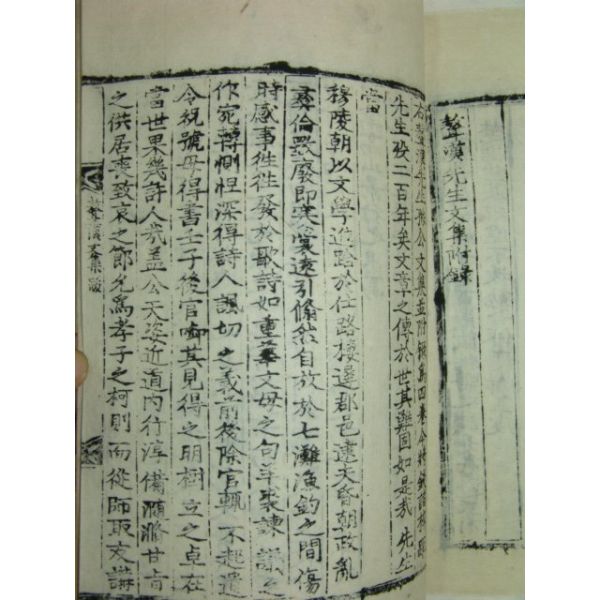 聱漢先生文集附錄
右聱漢先生孫公文集並附錄爲四卷今始鋟諸梓距
先生歿二百年矣文章之傳於世其難固如是哉先生
當
穆陵朝以文學進路於仕路棲遑郡邑逮天昏朝政亂
彝倫斁廢即褰裳遠引翛然自放於七灘漁釣之間傷
時感事徃徃發於歌詩如重華文母之句羊裘諫議之
作宛轉惻怛深得詩人諷切之義前後除官輒不起遺
令祝號毋得書壬子後官啣其見得之明樹立之卓在
當世果幾許人哉盖公天姿近道內行淳備滫瀡甘旨
之供居喪致哀之節允爲孝子之柯則而從師取友講
聱漢文集跋